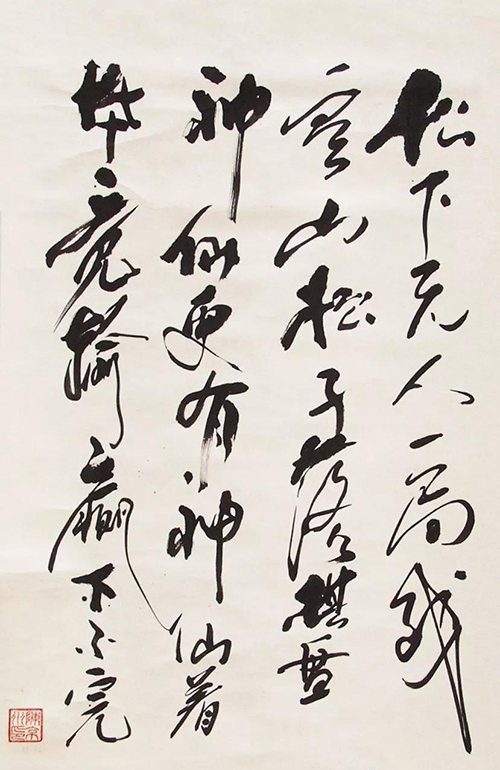 松下无人一局残
空山松子落棋盘
神仙更有神仙着
毕竟输赢下不完